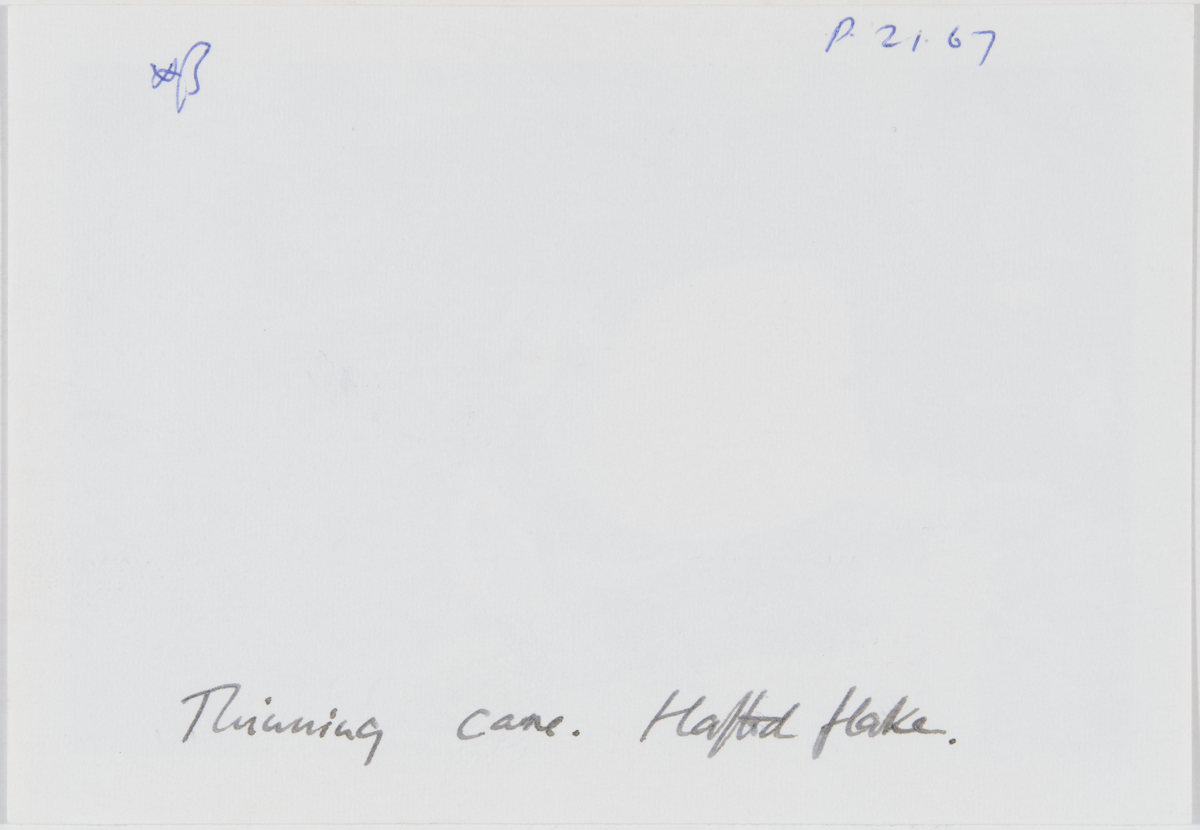 P. 21. 67
Thinning cane. Hafted flake.